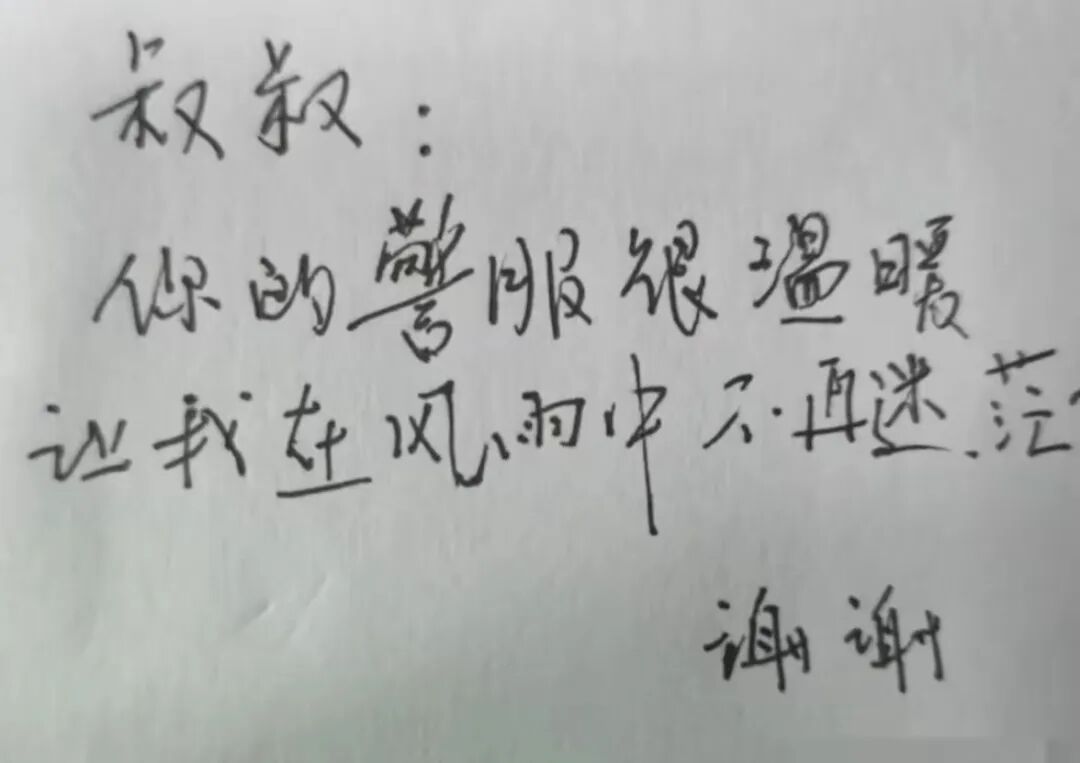 叔叔：
你的警服很温暖
让我在风雨中不再迷茫
谢谢